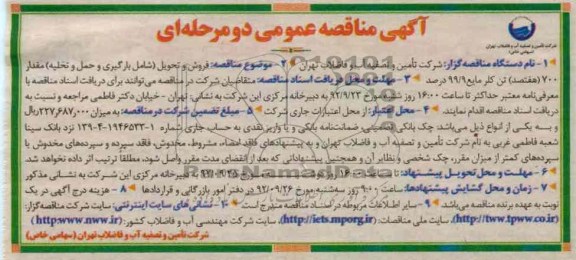 آگهی مناقصه عمومی دو مرحله‌ای
شرکت تأمین و تصفیه آب و فاضلاب تهران
(سهامی خاص)
۱- نام دستگاه مناقصه گزار: شرکت تأمین و تصفیه آب و فاضلاب تهران ۲- موضوع مناقصه: فروش و تحویل (شامل بارگیری و حمل و تخلیه) مقدار
۷۰۰ (هفتصد) تن کلر مایع ۹۹/۹ درصد ۳- مهلت و محل دریافت اسناد مناقصه: متقاضیان شرکت در مناقصه می‌توانند برای دریافت اسناد مناقصه با
معرفی‌نامه معتبر حداکثر تا ساعت ۱۶:۰۰ روز مورخ ۹۲/۹/۲۳ به دبیرخانه مرکزی این شرکت به نشانی: تهران - خیابان دکتر فاطمی مراجعه و نسبت به
دریافت اسناد مناقصه اقدام نمایند ۴- محل اعتبار: از محل اعتبارات جاری شرکت ۵- مبلغ تضمین شرکت در مناقصه: به میزان ۲۲۷,۶۸۷,۰۰۰ ریال
و به یکی از انواع ذیل می‌باشد: چک بانکی تضمینی، ضمانت‌نامه بانکی و یا واریز نقدی به حساب جاری شماره ۱-۱۹۴۶۵۳۳-۴-۱۳۹ نزد بانک سینا
شعبه فاطمی غربی به نام شرکت تأمین و تصفیه آب و فاضلاب تهران و به پیشنهادهای فاقد امضاء، مشروط، مخدوش، فاقد سپرده و سپرده‌های مخدوش یا
سپرده‌های کمتر از میزان مقرر، چک شخصی و نظایر آن و همچنین پیشنهاداتی که بعد از انقضای مدت مقرر واصل شود، مطلقا ترتیب اثر داده نخواهد شد
۶- مهلت و محل تحویل پیشنهاد: تا ساعت ۱۶ دبیرخانه مرکزی این شرکت به نشانی مذکور
۷- زمان و محل گشایش پیشنهادها: ساعت ۹:۰۰ روز سه‌شنبه مورخ ۹۲/۰۹/۲۶ در دفتر امور بازرگانی و قراردادها ۸- هزینه درج آگهی در یک
نوبت به عهده برنده مناقصه می‌باشد ۹- سایر اطلاعات مربوطه در اسناد مناقصه مندرج است ۱۰- نشانی‌های سایت اینترنتی: سایت شرکت مناقصه گزار:
(http://tww.tpww.co.ir)، سایت ملی مناقصات: (http://iets.mporg.ir)، سایت شرکت مهندسی آب و فاضلاب کشور: (http:www.nww.ir)
شرکت تأمین و تصفیه آب و فاضلاب تهران (سهامی خاص)